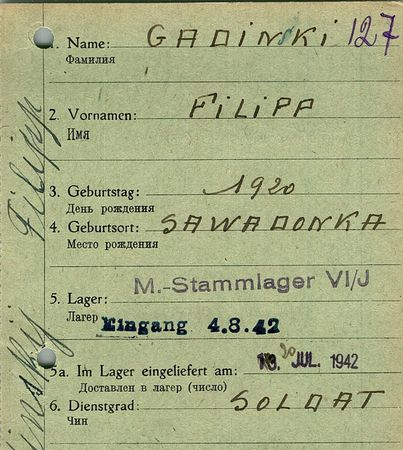 1. Name: GADINSKI 127
Фамилия
2. Vornamen: FILIPP
Имя
3. Geburtstag: 1920
День рождения
4. Geburtsort: SAWADONKA
Место рождения
M.-Stammlager VI/J
5. Lager:
Лагер Eingang 4.8.42
5a. Im Lager eingeliefert am: 20 JUL. 1942
Доставлен в лагер (число)
6. Dienstgrad: SOLDAT
Чин
Filipp